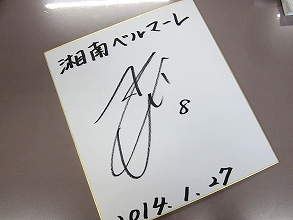 湘南ベルマーレ
8
2014.1.27